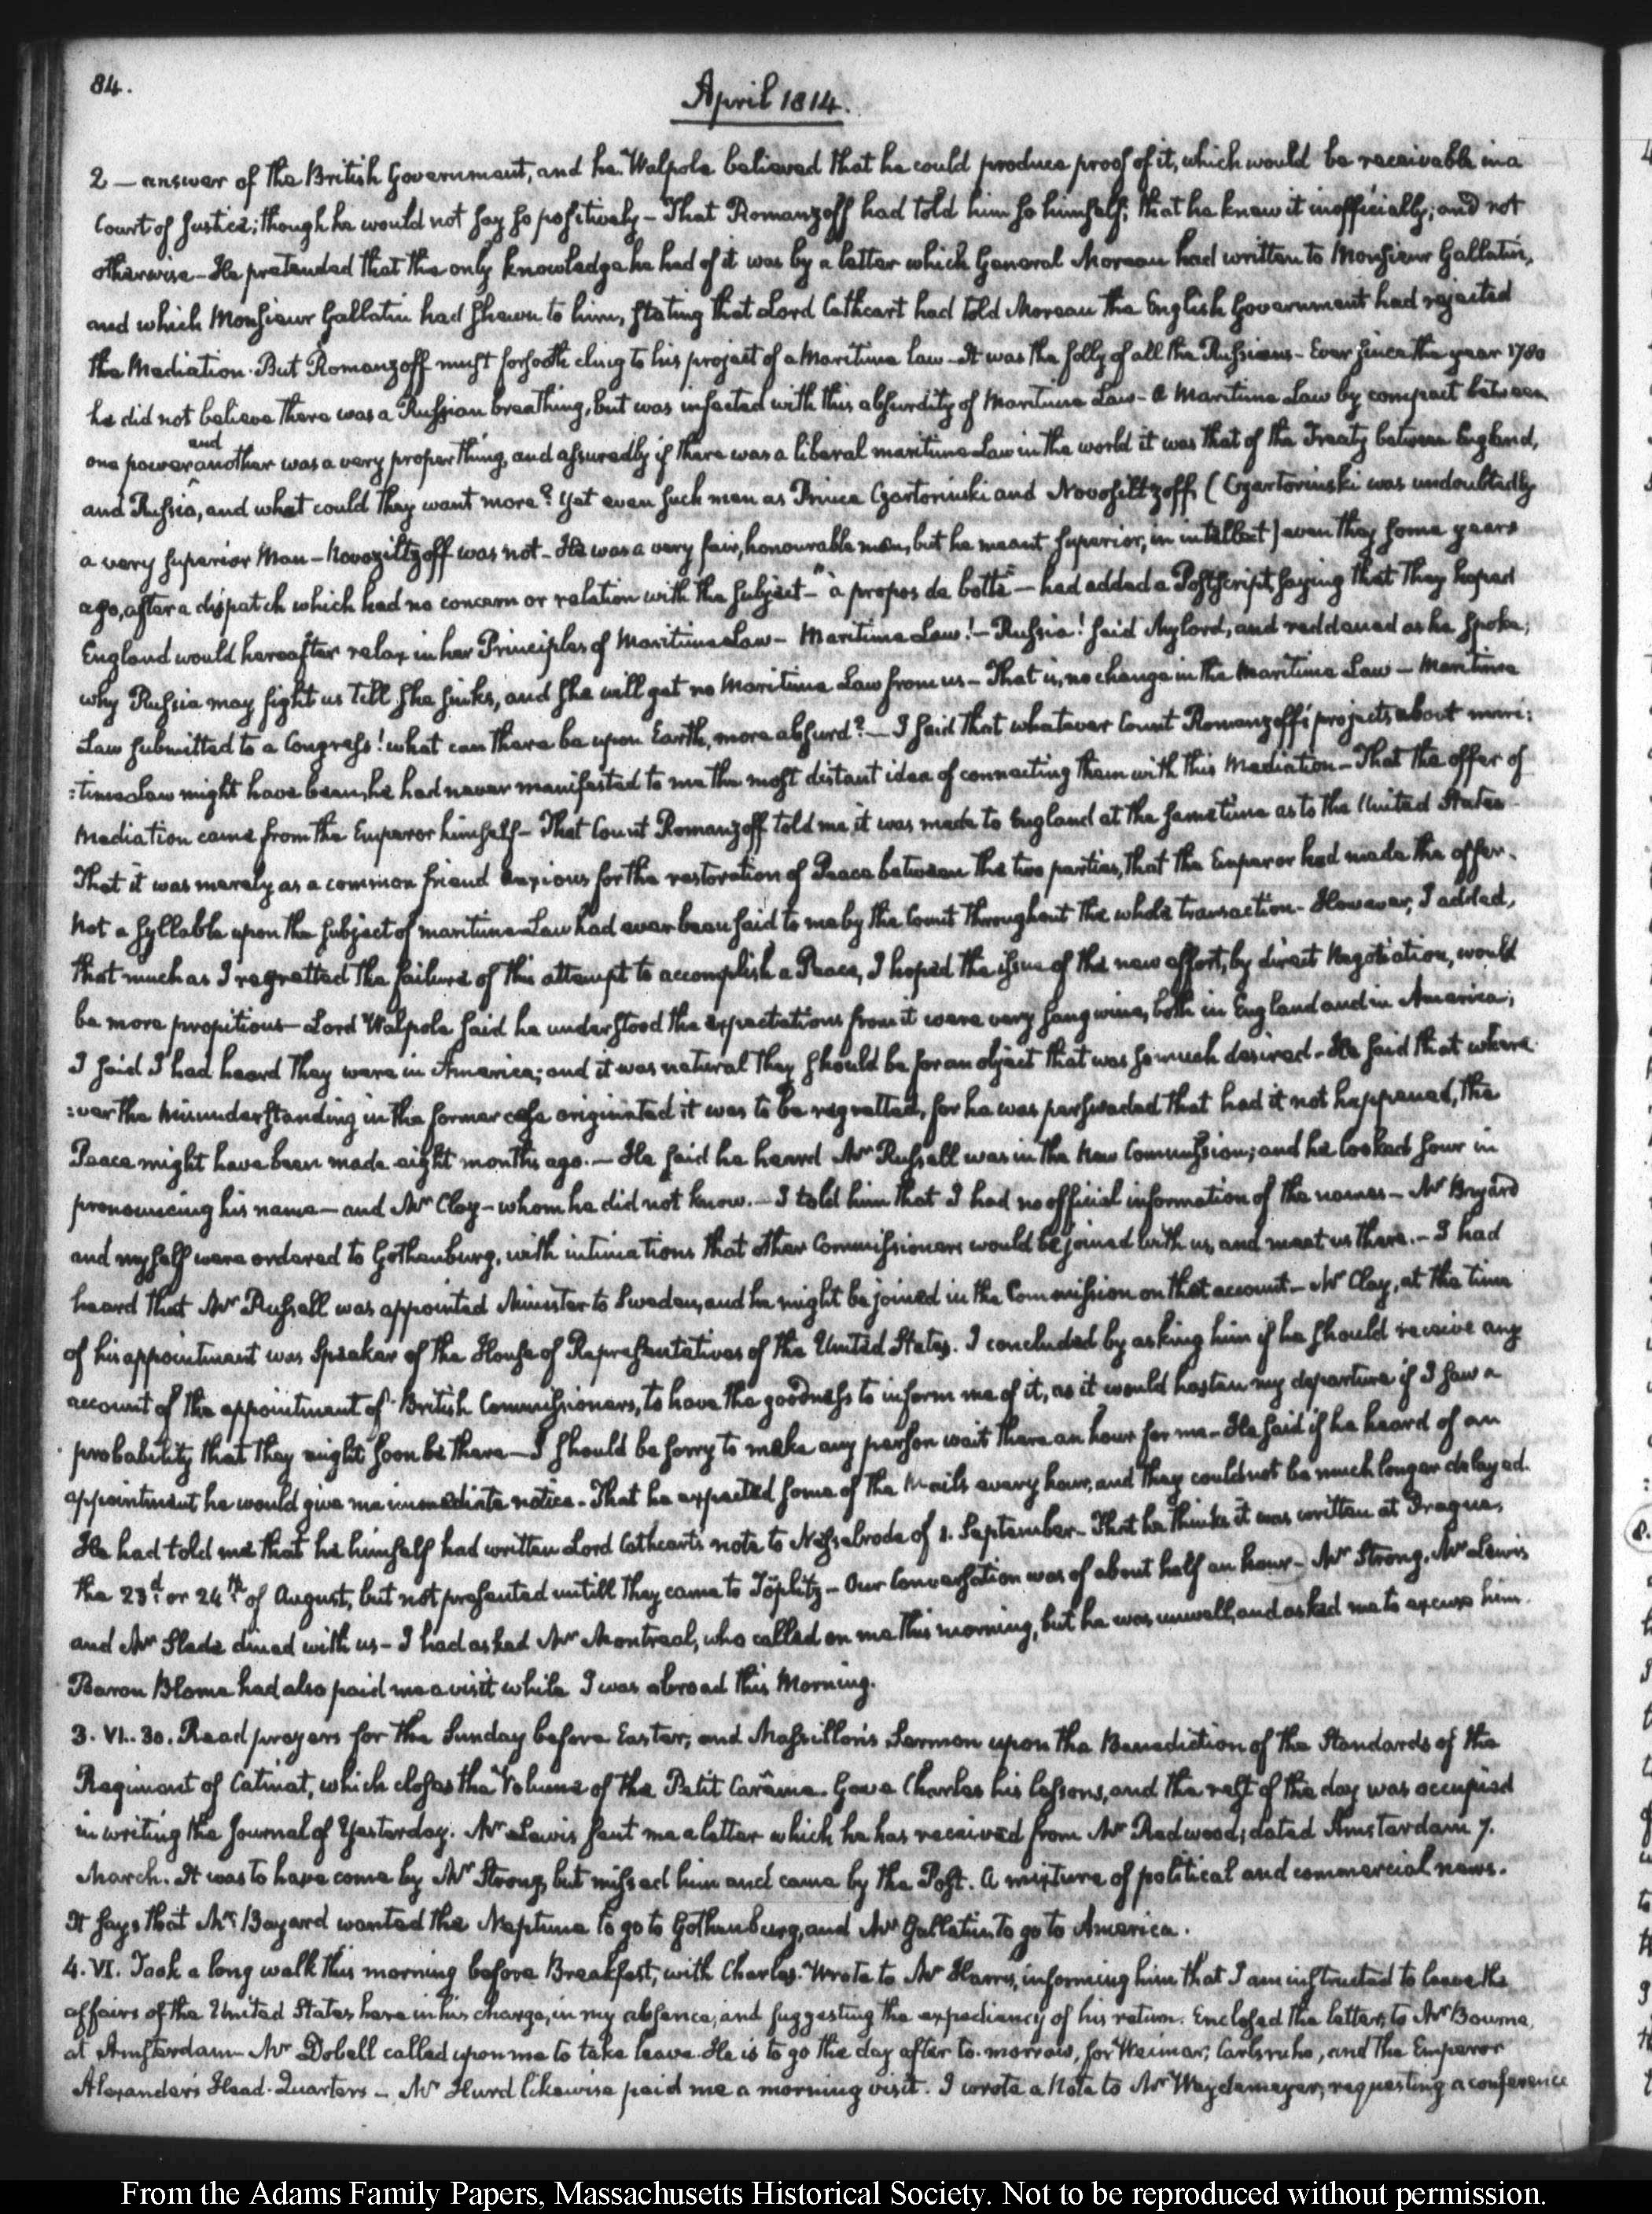 84.
April 1814.
2 — answer of the British Government, and he Walpole believed that he could produce proof of it, which would be receivable in a
Court of Justice; though he would not say so positively — That Romanzoff had told him so himself; that he knew it inofficially; and not
otherwise — He pretended that the only knowledge he had of it was by a letter which General Moreau had written to Monsieur Gallatin,
and which Monsieur Gallatin had shewn to him, stating that Lord Cathcart had told Moreau the English Government had rejected
the Mediation. But Romanzoff must forsooth cling to his project of a Maritime law — It was the folly of all the Russians — Ever since the year 1780
he did not believe there was a Russian breathing, but was infected with this absurdity of Maritime Law — A Maritime Law by compact between
one power and another was a very proper thing, and assuredly if there was a liberal maritime Law in the world it was that of the Treaty between England,
and Russia, and what could they want more? Yet even such men as Prince Czartorinski and Novosiltzoff (Czartorinski was undoubtedly
a very superior Man — Novoziltzoff was not — He was a very fair, honourable man, but he meant superior, in intellect) even they some years
ago, after a dispatch which had no concern or relation with the subject — "à propos de botte" — had added a Postscript, saying that they hoped
England would hereafter relax in her Principles of Maritime Law — Maritime Law! — Russia! said Mylord, and reddened as he spoke;
why Russia may fight us till she sinks, and she will get no Maritime Law from us — That is, no change in the Maritime Law — Maritime
Law submitted to a Congress! what can there be upon Earth, more absurd? — I said that whatever Count Romanzoff's projects about mari:
:time Law might have been, he had never manifested to me the most distant idea of connecting them with this Mediation — That the offer of
Mediation came from the Emperor himself — That Count Romanzoff told me it was made to England at the same time as to the United States
That it was merely as a common friend anxious for the restoration of Peace between the two parties, that the Emperor had made the offer.
Not a syllable upon the subject of maritime Law had ever been said to me by the Count throughout the whole transaction — However, I added,
that much as I regretted the failure of this attempt to accomplish a Peace, I hoped the issue of the new effort, by direct Negotiation, would
be more propitious — Lord Walpole said he understood the expectations from it were very sanguine, both in England and in America;
I said I had heard they were in America; and it was natural they should be for an object that was so much desired — He said that where:
:ver the Misunderstanding in the former case originated it was to be regretted, for he was perswaded that had it not happened, the
Peace might have been made eight months ago. — He said he heard Mr Russell was in the New Commission; and he looked sour in
pronouncing his name — and Mr Clay — whom he did not know. — I told him that I had no official information of the names — Mr Bayard
and myself were ordered to Gothenburg, with intimations that other Commissioners would be joined with us, and meet us there. — I had
heard that Mr Russell was appointed Minister to Sweden, and he might be joined in the Commission on that account — Mr Clay, at the time
of his appointment was Speaker of the House of Representatives of the United States. I concluded by asking him if he should receive any
account of the appointment of British Commissioners, to have the goodness to inform me of it, as it would hasten my departure if I saw a
probability that they might soon be there — I should be sorry to make any person wait there an hour for me — He said if he heard of an
appointment he would give me immediate notice — That he expected some of the Mails every hour, and they could not be much longer delayed.
He had told me that he himself had written Lord Cathcart's note to Nesselrode of 1. September — That he thinks it was written at Prague,
the 23d or 24th of August, but not presented untill they came to Töplitz — Our Conversation was of about half an hour — Mr Strong, Mr Lewis
and Mr Slade dined with us — I had asked Mr Montreal, who called on me this morning, but he was unwell, and asked me to excuse him.
Baron Blome had also paid me a visit while I was abroad this Morning.
3. VI. 30. Read prayers for the Sunday before Easter, and Massillon's Sermon upon the Benediction of the Standards of the
Regiment of Catinat, which closes the Volume of the Petit Carême. Gave Charles his lessons, and the rest of the day was occupied
in writing the Journal of Yesterday. Mr Lewis sent me a letter which he has received from Mr Redwood; dated Amsterdam 7.
March. It was to have come by Mr Strong, but missed him and came by the Post. A mixture of political and commercial news.
It says that Mr Bayard wanted the Neptune to go to Gothenburg, and Mr Gallatin to go to America.
4. VI. Took a long walk this morning before Breakfast, with Charles. Wrote to Mr Harris, informing him that I am instructed to leave the
affairs of the United States here in his charge, in my absence, and suggesting the expediency of his return. Enclosed the letter, to Mr Bourne,
at Amsterdam — Mr Dobell called upon me to take leave. He is to go the day after to-morrow, for Weimar, Carlsruhe, and the Emperor
Alexander's Head-Quarters — Mr Hurd likewise paid me a morning visit. I wrote a Note to Mr Weydemeyer, requesting a conference
From the Adams Family Papers, Massachusetts Historical Society. Not to be reproduced without permission.